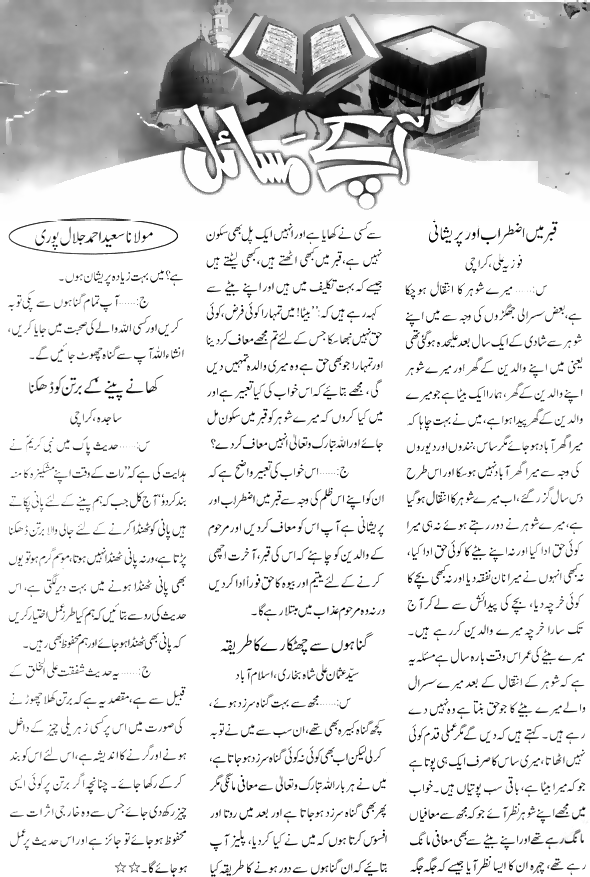 آپ کے مسائل
مولانا سعید احمد جلال پوری
قبر میں اضطراب اور پریشانی
فوزیہ علی، کراچی
س:......میرے شوہر کا انتقال ہوچکا
ہے، بعض سسرالی جھگڑوں کی وجہ سے میں اپنے
شوہر سے شادی کے ایک سال بعد علیحدہ ہوگئی تھی
یعنی میں اپنے والدین کے گھر اور میرے شوہر
اپنے والدین کے گھر، ہمارا ایک بیٹا ہے جو میرے
والدین کے گھر پیدا ہوا ہے، میں نے بہت چاہا کہ
میرا گھر آباد ہوجائے مگر ساس، نندوں اور دیوروں
کی وجہ سے میرا گھر آباد نہیں ہوسکا اور اس طرح
دس سال گزر گئے، اب میرے شوہر کا انتقال ہوگیا
ہے، میرے شوہر نے دور رہتے ہوئے نہ ہی میرا
کوئی حق ادا کیا اور نہ اپنے بیٹے کا کوئی حق ادا کیا،
نہ کبھی انہوں نے میرا نان نفقہ دیا اور نہ کبھی بچے کا
کوئی خرچہ دیا، بچے کی پیدائش سے لے کر آج
تک سارا خرچہ میرے والدین کررہے ہیں۔
میرے بیٹے کی عمر اس وقت بارہ سال ہے مسئلہ یہ
ہے کہ شوہر کے انتقال کے بعد میرے سسرال
والے میرے بیٹے کا جو حق بنتا ہے وہ نہیں دے
رہے ہیں۔ کہتے ہیں کہ دیں گے مگر عملی قدم کوئی
نہیں اٹھاتا، میری ساس کا صرف ایک ہی پوتا ہے
جو کہ میرا بیٹا ہے، باقی سب پوتیاں ہیں۔ خواب
میں مجھے اپنے شوہر نظر آئے جو کہ مجھ سے معافیاں
مانگ رہے تھے اور اپنے بیٹے سے بھی معافی مانگ
رہے تھے، چہرہ ان کا ایسا نظر آیا جیسے کہ جگہ جگہ
سے کسی نے کھایا ہے اور انہیں ایک پل بھی سکون
نہیں ہے، قبر میں کبھی اٹھتے ہیں، کبھی لیٹتے ہیں
جیسے کہ بہت تکلیف میں ہیں اور اپنے بیٹے سے
کہہ رہے ہیں کہ: ”بیٹا! میں تمہارا کوئی فرض، کوئی
حق نہیں نبھا سکا جس کے لئے تم مجھے معاف کردینا
اور تمہارا جو بھی حق ہے وہ میری والدہ تمہیں دیں
گی، مجھے بتائیے کہ اس خواب کی کیا تعبیر ہے اور
میں کیا کروں کہ میرے شوہر کو قبر میں سکون مل
جائے اور اللہ تبارک وتعالیٰ انہیں معاف کردے؟
ج:......اس خواب کی تعبیر واضح ہے کہ
ان کو اپنے اس ظلم کی وجہ سے قبر میں اضطراب اور
پریشانی ہے آپ اس کو معاف کردیں اور مرحوم
کے والدین کو چاہئے کہ اس کی قبر، آخرت اچھی
کرنے کے لئے یتیم اور بیوہ کا حق فوراً ادا کردیں
ورنہ وہ مرحوم عذاب میں مبتلا رہے گا۔
گناہوں سے چھٹکارے کا طریقہ
سید عثمان علی شاہ بخاری، اسلام آباد
س:......مجھ سے بہت گناہ سرزد ہوئے،
کچھ گناہ کبیرہ بھی تھے، ان سب سے میں نے توبہ
کرلی لیکن اب بھی کوئی نہ کوئی گناہ سرزد ہوجاتا ہے،
میں نے ہر بار اللہ تبارک وتعالیٰ سے معافی مانگی مگر
پھر بھی گناہ سرزد ہوجاتا ہے اور بعد میں روتا اور
افسوس کرتا ہوں کہ میں نے کیا کردیا، پلیز آپ
بتائیے کہ ان گناہوں سے دور ہونے کا طریقہ کیا
ہے؟ میں بہت زیادہ پریشان ہوں۔
ج:......آپ تمام گناہوں سے پکی توبہ
کریں اور کسی اللہ والے کی صحبت میں جایا کریں،
انشاء اللہ آپ سے گناہ چھوٹ جائیں گے۔
کھانے پینے کے برتن کو ڈھکنا
ساجدہ، کراچی
س:......حدیث پاک میں نبی کریمؐ نے
ہدایت کی ہے کہ ”رات کے وقت اپنے مشکیزہ کا منہ
بند کردو“ آج کل جب کہ ہم پینے کے لئے پانی پکاتے
ہیں پانی کو ٹھنڈا کرنے کے لئے جالی والا برتن ڈھکنا
پڑتا ہے، ورنہ پانی ٹھنڈا نہیں ہوتا، موسم گرم ہو تو یوں
بھی پانی ٹھنڈا ہونے میں بہت دیر لگتی ہے، اس
حدیث کی رو سے بتائیں کہ ہم کیا طرز عمل اختیار کریں
کہ پانی بھی ٹھنڈا ہوجائے اور ہم محفوظ بھی رہیں۔
ج:......یہ حدیث شفقت علی الخلق کے
قبیل سے ہے، مقصد یہ ہے کہ برتن کھلا چھوڑنے
کی صورت میں اس پر کسی زہریلی چیز کے داخل
ہونے اور گرنے کا اندیشہ ہے، اس لئے اس کو بند
کرکے رکھا جائے۔ چنانچہ اگر برتن پر کوئی ایسی
چیز رکھ دی جائے جس سے وہ خارجی اثرات سے
محفوظ ہوجائے تو جائز ہے اور اس حدیث پر عمل
ہوجائے گا۔☆☆